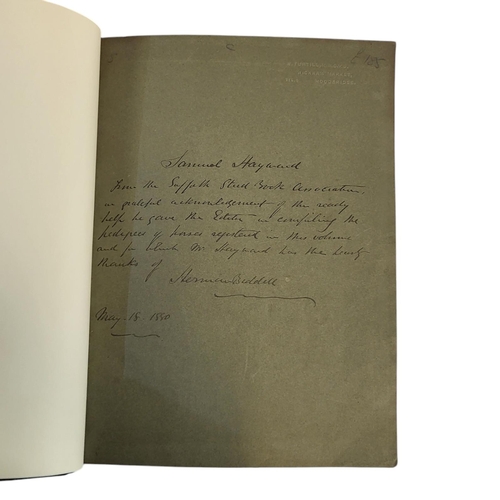 Samuel Hayward
From the Suffolk Stud Book Association
in grateful acknowledgement of the ready
help he gave the Editor in compiling the
pedigrees of horses registered in this volume
and for which Mr Hayward has the
thanks of
Herman Biddell
May 18 1880